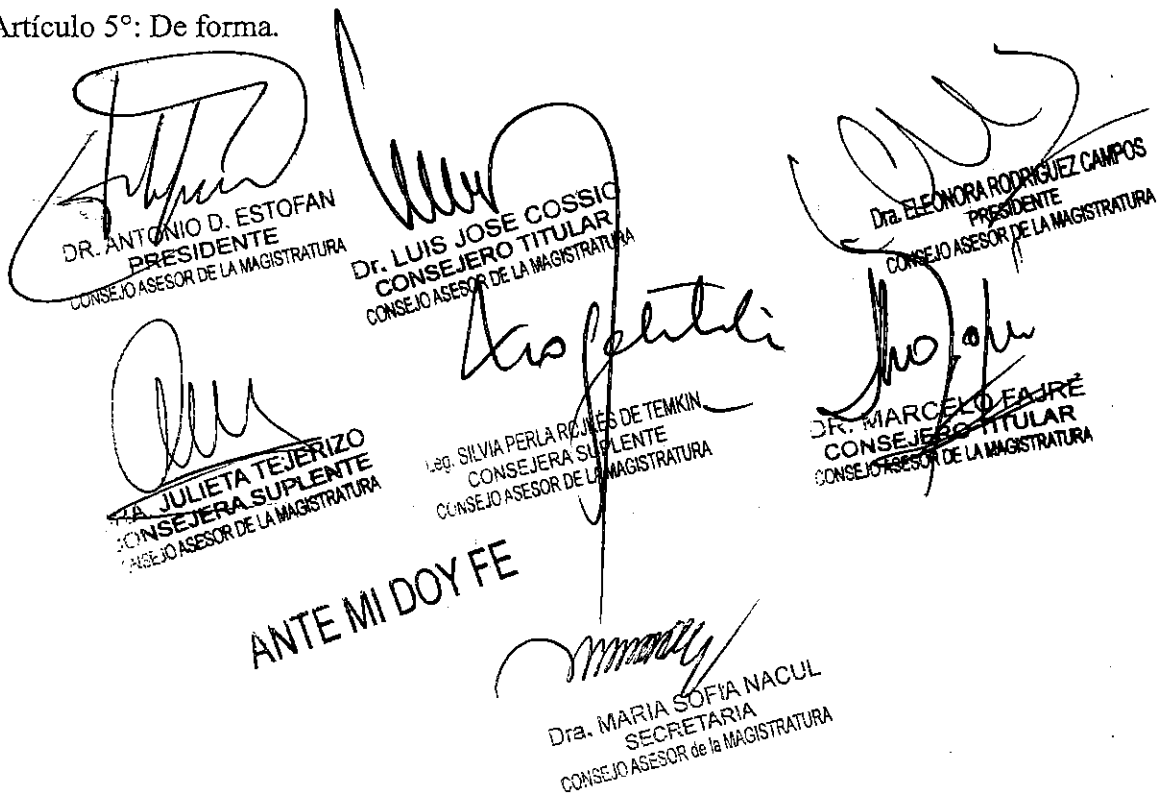 Artículo 5°: De forma.
DR. ANTONIO D. ESTOFAN
PRESIDENTE
CONSEJO ASESOR DE LA MAGISTRATURA
Dr. LUIS JOSE COSSIO
CONSEJERO TITULAR
CONSEJO ASESOR DE LA MAGISTRATURA
Dra. ELEONORA RODRIGUEZ CAMPOS
PRESIDENTE
CONSEJO ASESOR DE LA MAGISTRATURA
JULIETA TEJERIZO
CONSEJERA SUPLENTE
CONSEJO ASESOR DE LA MAGISTRATURA
Leg. SILVIA PERLA ROJKÉS DE TEMKIN
CONSEJERA SUPLENTE
CONSEJO ASESOR DE LA MAGISTRATURA
DR. MARCELO FAJRÉ
CONSEJERO TITULAR
CONSEJO ASESOR DE LA MAGISTRATURA
ANTE MI DOY FE
Dra. MARIA SOFIA NACUL
SECRETARIA
CONSEJO ASESOR de la MAGISTRATURA